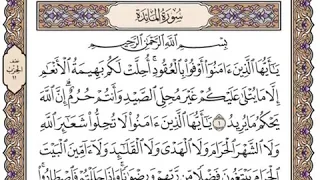 سُورَةُ المَائِدَةِ
بِسْمِ ٱللَّهِ ٱلرَّحْمَٰنِ ٱلرَّحِيمِ
يَٰٓأَيُّهَا ٱلَّذِينَ ءَامَنُوٓا۟ أَوْفُوا۟ بِٱلْعُقُودِۚ أُحِلَّتْ لَكُم بَهِيمَةُ ٱلْأَنْعَٰمِ
إِلَّا مَا يُتْلَىٰ عَلَيْكُمْ غَيْرَ مُحِلِّى ٱلصَّيْدِ وَأَنتُمْ حُرُمٌۗ إِنَّ ٱللَّهَ
يَحْكُمُ مَا يُرِيدُ ١ يَٰٓأَيُّهَا ٱلَّذِينَ ءَامَنُوا۟ لَا تُحِلُّوا۟ شَعَٰٓئِرَ ٱللَّهِ
وَلَا ٱلشَّهْرَ ٱلْحَرَامَ وَلَا ٱلْهَدْىَ وَلَا ٱلْقَلَٰٓئِدَ وَلَآ ءَآمِّينَ ٱلْبَيْتَ
ٱلْحَرَامَ يَبْتَغُونَ فَضْلًا مِّن رَّبِّهِمْ وَرِضْوَٰنًاۚ وَإِذَا حَلَلْتُمْ فَٱصْطَادُوا۟ۚ
الحزب
١١